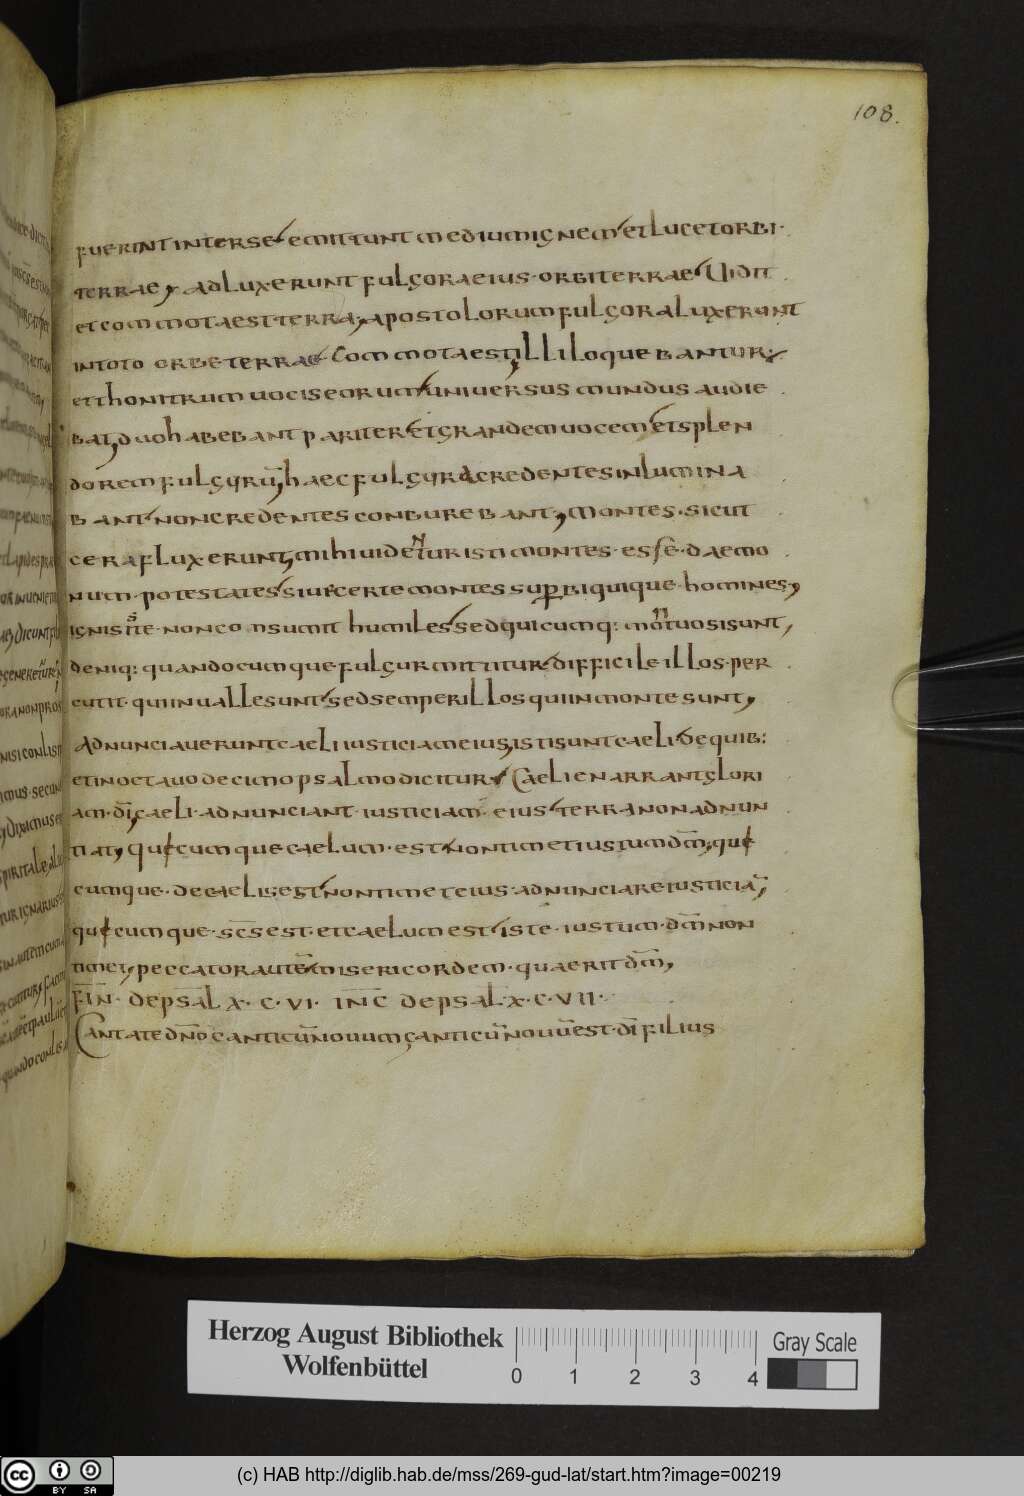 108.
fuerint inter se emittunt medium ignem et lucet orbi·
terrae, adluxerunt fulgora eius· orbi terrae Vidit
et commota est terra, apostolorum fulgora luxerunt
in toto orbe terrae Commota est, illi loquebantur;
et thonitrum vocis eorum universus mundus audie
bat, duo habebant pariter et grandem vocem et splen
dorem fulgurū, haec fulgura credentes inlumina
bant non credentes conburebant, Montes· sicut
cera fluxerunt, mihi videntur isti montes· esse· daemo
num· potestates siue certe montes superbi quique· homines,
ignis iste· non consumit humiles sed quicumq: montuosi sunt,
deniq: quandocumque fulgur mittitur difficile illos· per
cutit· qui in ualle sunt sed semper illos qui in monte sunt,
Adnunciauerunt caeli iusticiam eius, isti sunt caeli de quib:
et in octauo decimo psalmo dicitur Caeli enarrant glori
am· dī, caeli· adnunciant· iusticiam· eius terra non adnun
tiat, Quęcumque caelum· est non timet iustum dm̄, quę
cumque· de caelis est non timet eius· adnunciare iusticiā,
quęcumque· scs̄ est· et caelum est iste· iustum· dm̄ non
timet, peccator autē misericordem· quaerit dm̄,
FIN̄· de psal X·C·VI· INC̄ de psal X·C·VII·
Cantate dn̄o canticū nouum, canticū nouū est· dī filius
Herzog August Bibliothek
Wolfenbüttel
0 1 2 3 4
Gray Scale
cc BY SA
(c) HAB http://diglib.hab.de/mss/269-gud-lat/start.htm?image=00219